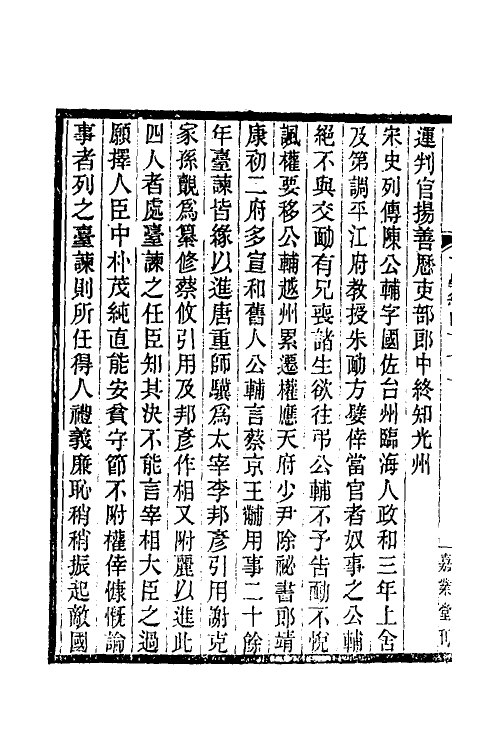 運判官揚善歷吏部郎中終知光州
宋史列傳陳公輔字國佐台州臨海人政和三年上舍
及第調平江府教授朱勔方嬖倖當官者奴事之公輔
絕不與交勔有兄喪諸生欲往弔公輔不予告勔不悅
諷權要移公輔越州累遷權應天府少尹除祕書郎靖
康初二府多宣和舊人公輔言蔡京王黼用事二十餘
年臺諫皆緣以進唐重師驥爲太宰李邦彥引用謝克
家孫覿爲纂修蔡攸引用及邦彥作相又附麗以進此
四人者處臺諫之任臣知其決不能言宰相大臣之過
願擇人臣中朴茂純直能安貧守節不附權倖慷慨論
事者列之臺諫則所任得人禮義廉恥稍稍振起敵國
嘉業堂刊